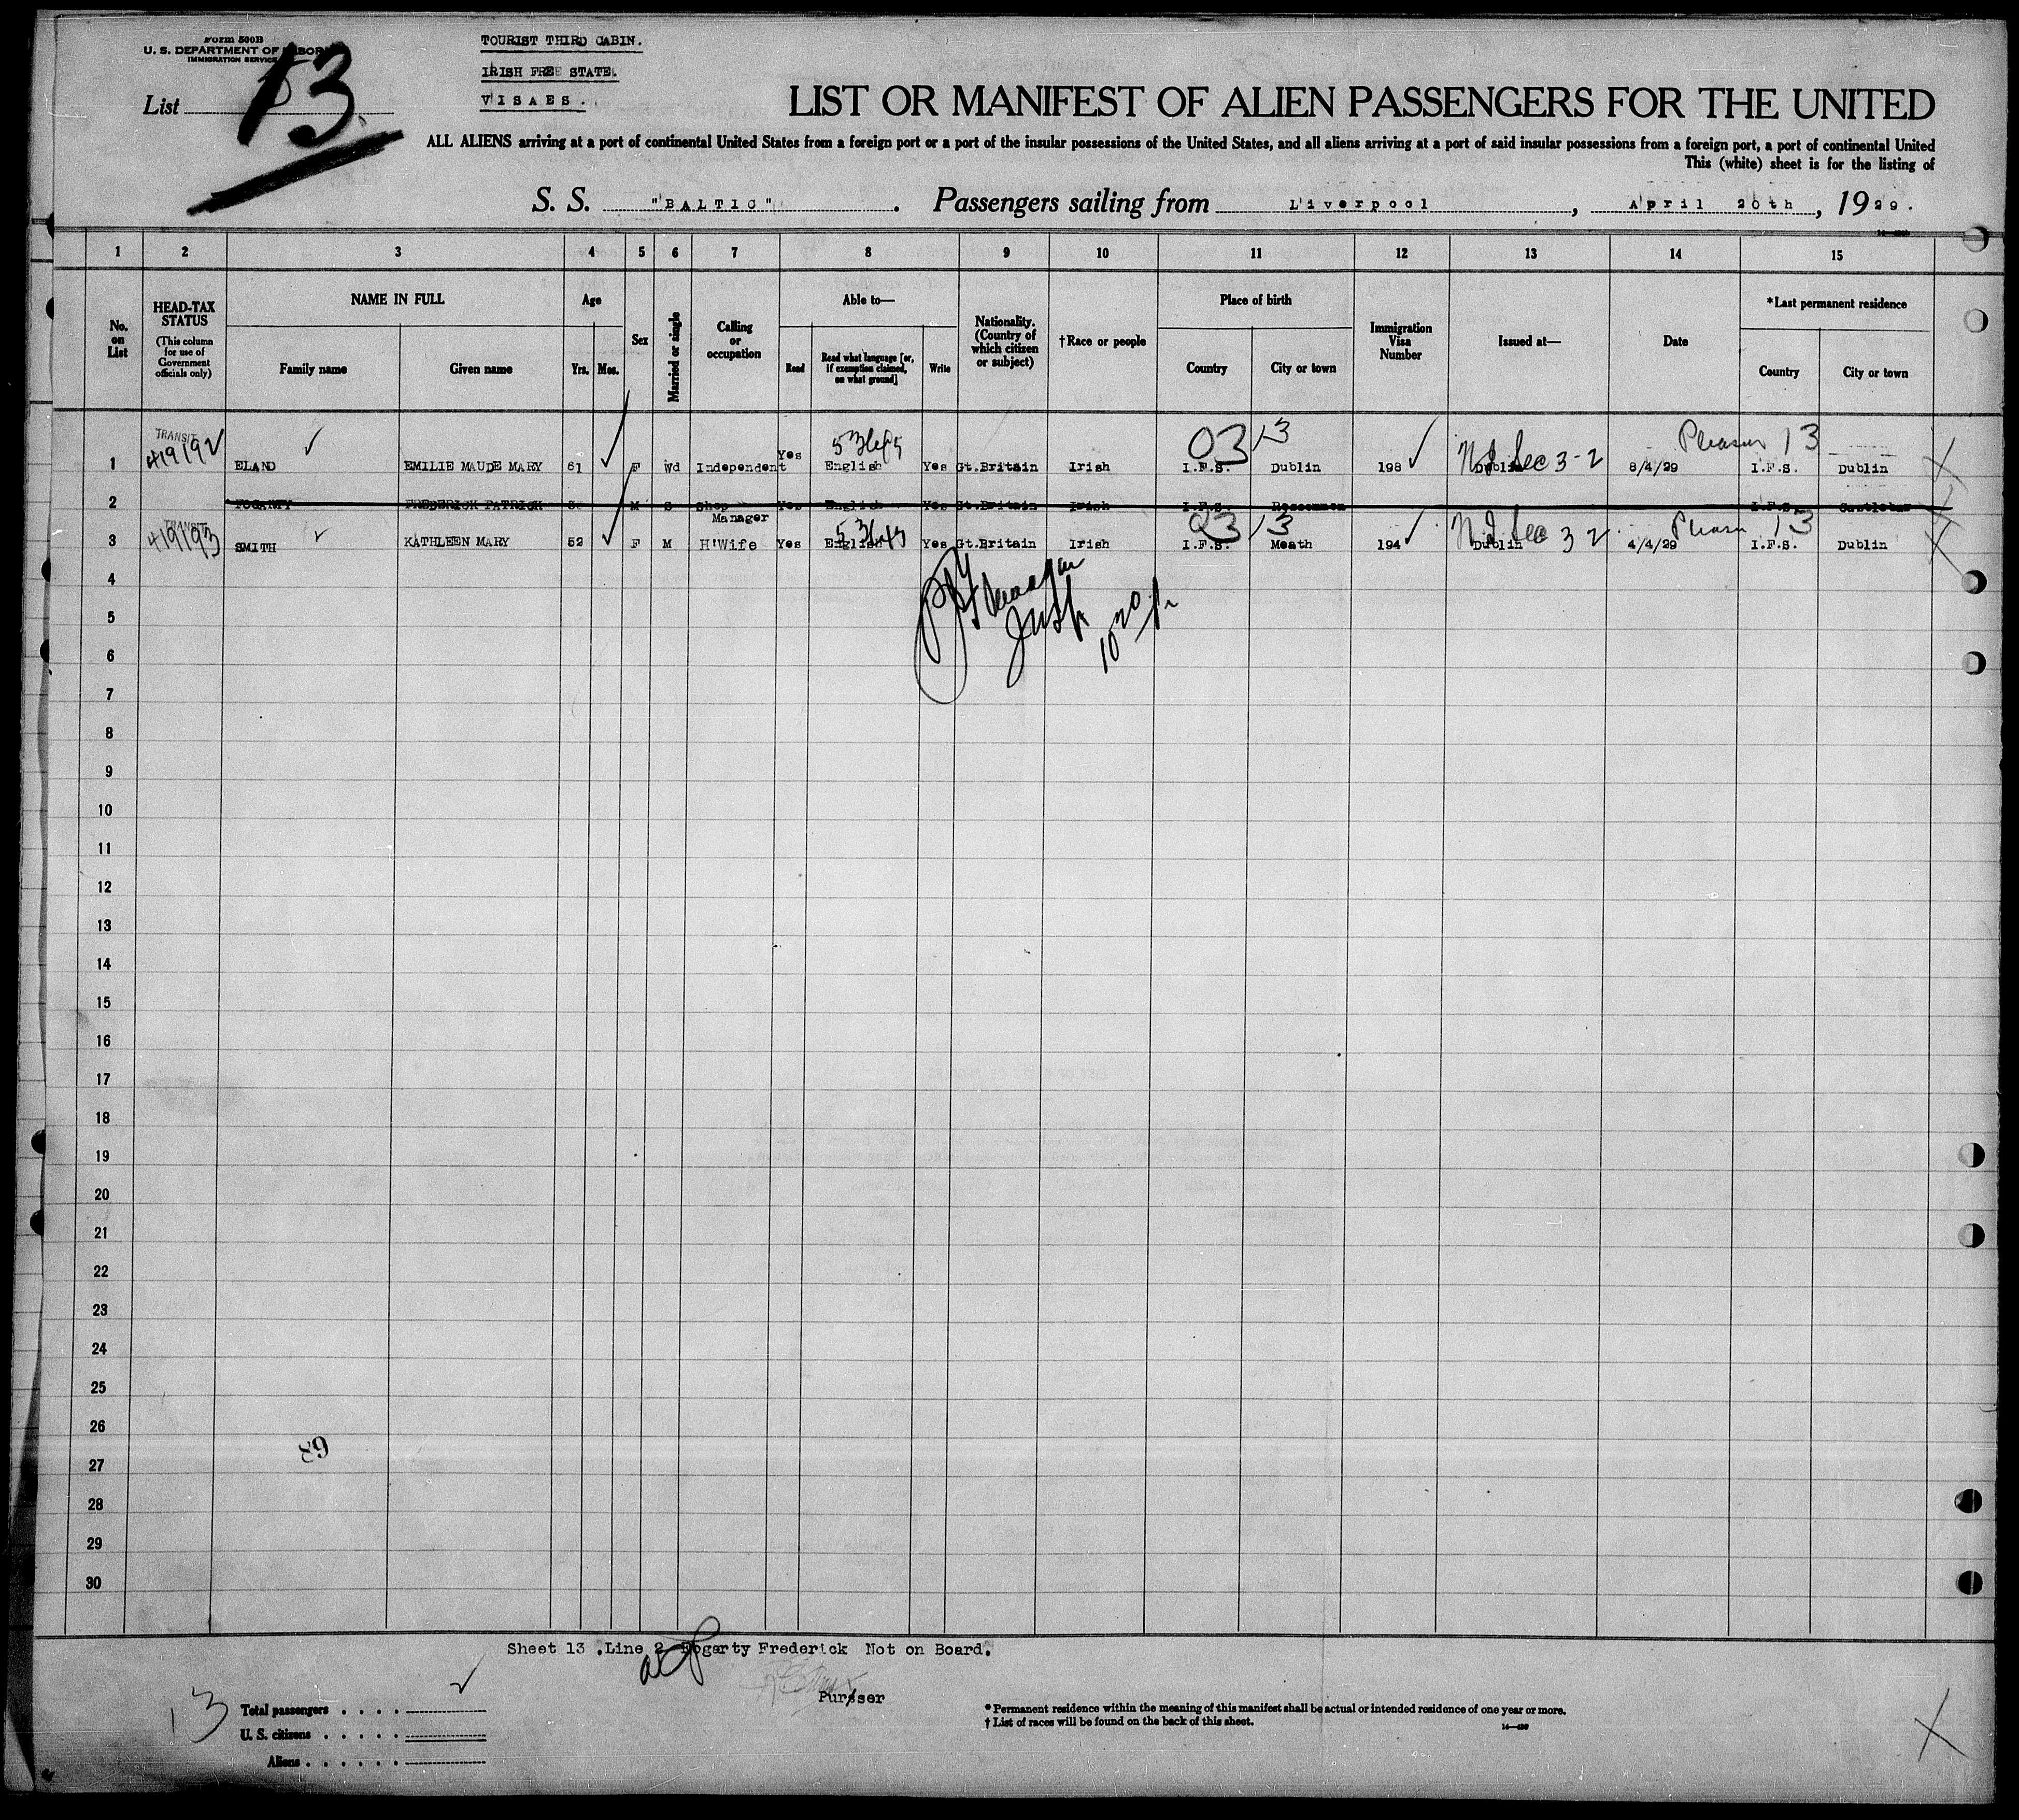 Form 500B
U. S. DEPARTMENT OF LABOR
IMMIGRATION SERVICE
List 13
TOURIST THIRD CABIN.
IRISH FREE STATE.
VISAES.
LIST OR MANIFEST OF ALIEN PASSENGERS FOR THE UNITED
ALL ALIENS arriving at a port of continental United States from a foreign port or a port of the insular possessions of the United States, and all aliens arriving at a port of said insular possessions from a foreign port, a port of continental United
This (white) sheet is for the listing of
S. S. "BALTIC". Passengers sailing from Liverpool, April 20th, 1929.
1 2 3 4 5 6 7 8 9 10 11 12 13 14 15
No. on List
HEAD-TAX STATUS
(This column for use of Government officials only)
NAME IN FULL
Family name
Given name
Age
Yrs. Mos.
Sex
Married or single
Calling or occupation
Able to—
Read
Read what language [or, if exemption claimed, on what ground]
Write
Nationality. (Country of which citizen or subject)
†Race or people
Place of birth
Country
City or town
Immigration Visa Number
Issued at—
Date
*Last permanent residence
Country
City or town
TRANSIT 03 13 Pleasure 13
1 419192 ELAND EMILIE MAUDE MARY 61 F Wd Independent Yes English Yes Gt.Britain Irish I.F.S. Dublin 198 Dublin Sec 3-2 8/4/29 I.F.S. Dublin
2 FOGARTY FREDERICK PATRICK M S Shop Manager Yes English Yes Gt.Britain Irish I.F.S. Roscommon I.F.S. Castlebar
TRANSIT 03 13 13
3 419193 SMITH KATHLEEN MARY 52 F M H'Wife Yes English Yes Gt.Britain Irish I.F.S. Meath 194 Dublin Sec 3 2 4/4/29 I.F.S. Dublin
4
5
6
7
8
9
10
11
12
13
14
15
16
17
18
19
20
21
22
23
24
25
26
89
27
28
29
30
Sheet 13 .Line 2 Fogarty Frederick Not on Board.
Purser
13
Total passengers
U. S. citizens
Aliens
* Permanent residence within the meaning of this manifest shall be actual or intended residence of one year or more.
† List of races will be found on the back of this sheet.